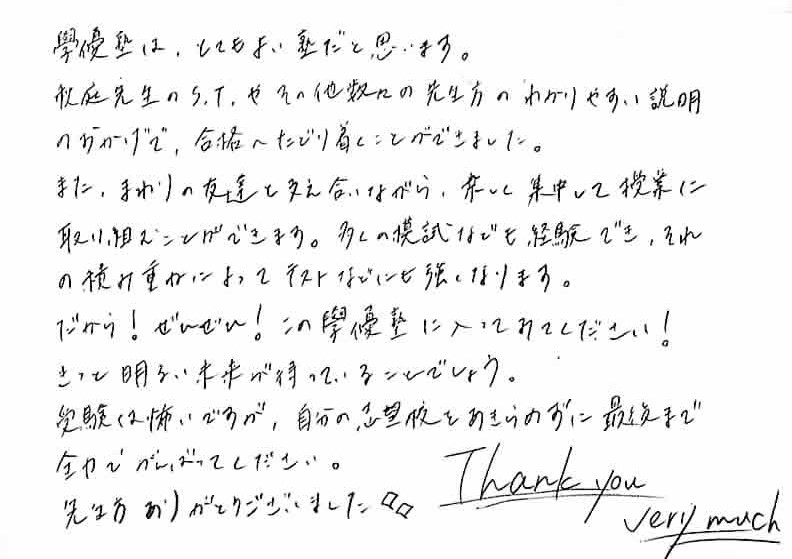 學優塾は、とてもよい塾だと思います。
秋庭先生のS.T.やその他数々の先生方のわかりやすい説明
のおかげで、合格へたどり着くことができました。
また、まわりの友達と支え合いながら、楽しく集中して授業に
取り組むことができます。多くの模試なども経験でき、それ
の積み重ねによってテストなどにも強くなります。
だから！ぜひぜひ！この學優塾に入ってみてください！
きっと明るい未来が待っていることでしょう。
受験は怖いですが、自分の志望校をあきらめずに最後まで
全力でがんばってください。
先生方ありがとうございました
Thank you
very much